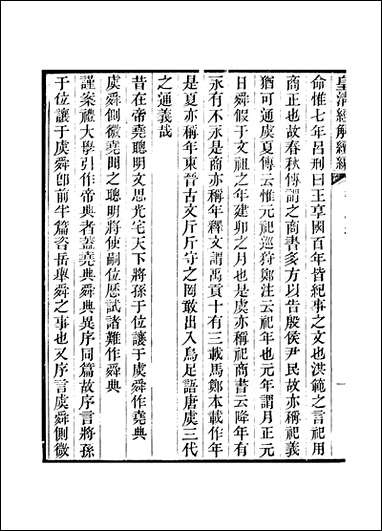 皇清經解續編
命惟七年呂刑曰王享國百年皆紀事之文也洪範之言祀用
商正也故春秋傳謂之商書多方以告殷侯尹民故亦稱祀義
猶可通虞夏傳云惟元祀巡狩鄭注云祀年也元年謂月正元
日舜假于文祖之年建卯之月也是虞亦稱祀商書云降年有
永有不永是商亦稱年釋文謂禹貢十有三載馬鄭本載作年
是夏亦稱年東晉古文斤斤守之罔敢出入烏足語唐虞三代
之通義哉
昔在帝堯聰明文思光宅天下將孫于位讓于虞舜作堯典
虞舜側微堯聞之聰明將使嗣位歷試諸難作舜典
謹案禮大學引作帝典者蓋堯典舜典異序同篇故序言將孫
于位讓于虞舜卽前半篇咨岳舉舜之事也又序言虞舜側微